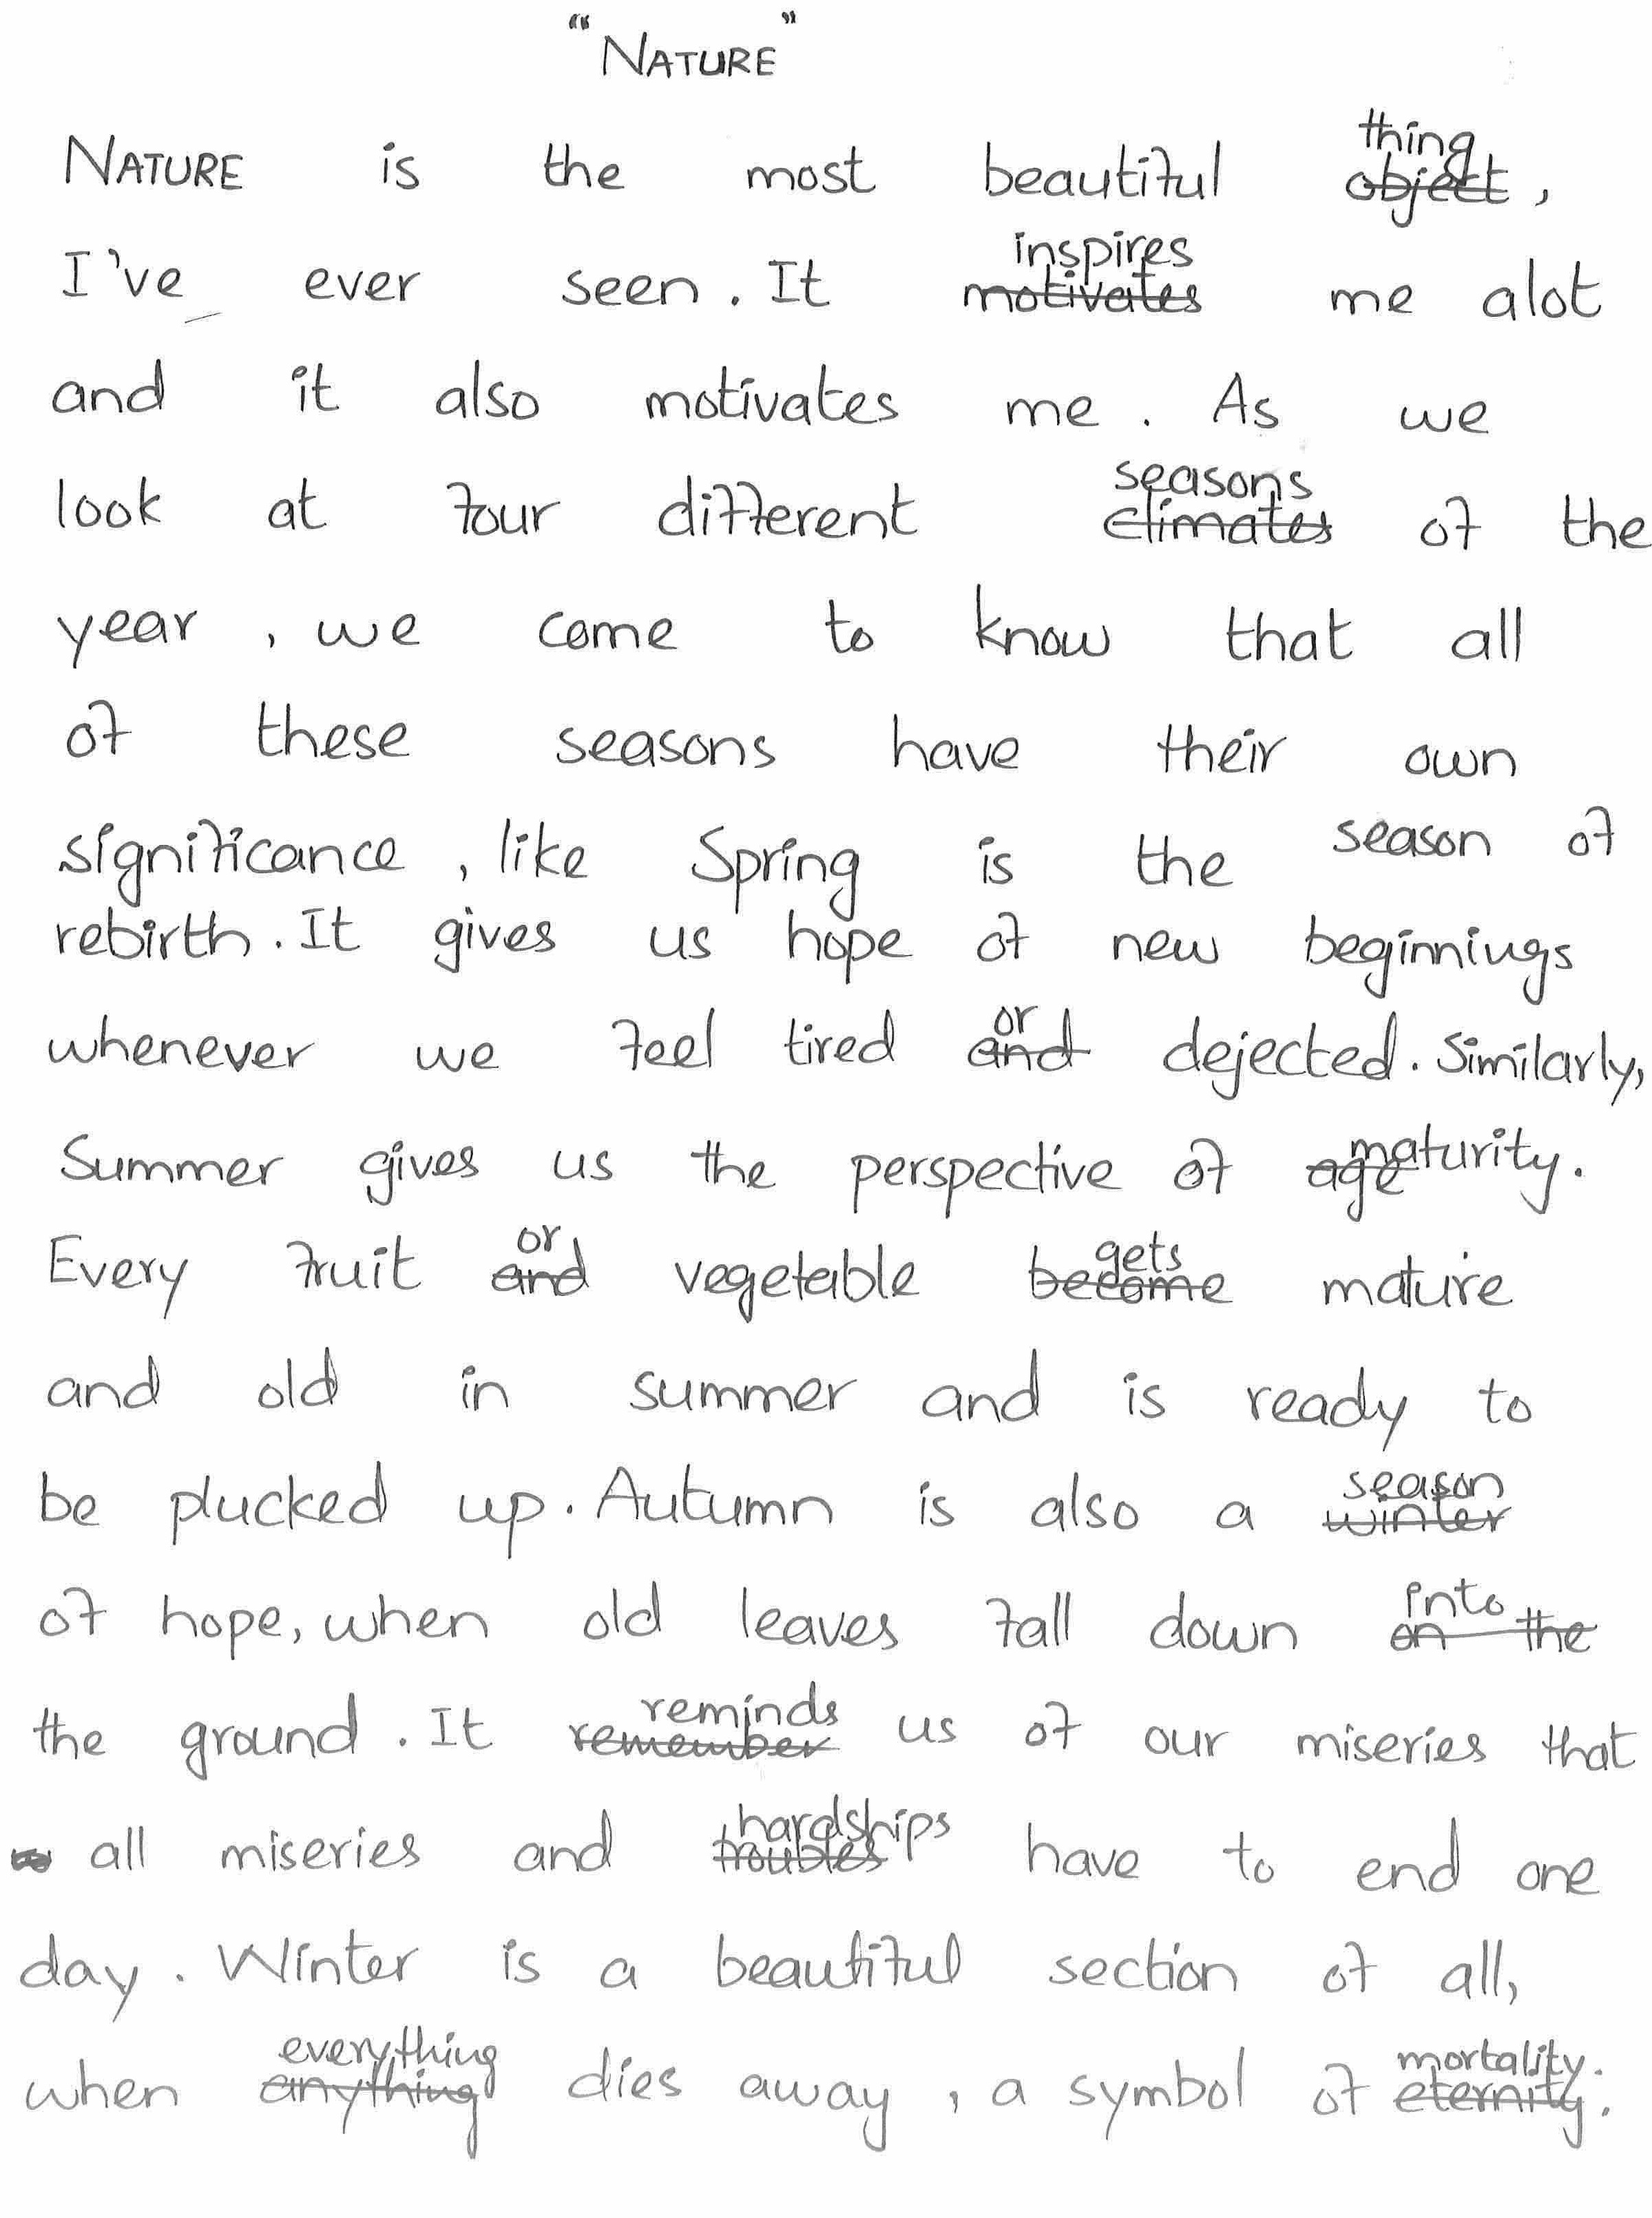 "NATURE"
NATURE is the most beautiful thing object,
I've ever seen. It inspires motivates me alot
and it also motivates me. As we
look at four different seasons climates of the
year, we come to know that all
of these seasons have their own
significance, like Spring is the season of
rebirth. It gives us hope of new beginnings
whenever we feel tired or and dejected. Similarly,
Summer gives us the perspective of age maturity.
Every fruit or and vegetable gets become mature
and old in summer and is ready to
be plucked up. Autumn is also a season winter
of hope, when old leaves fall down into on the
the ground. It reminds remember us of our miseries that
all miseries and hardships troubles have to end one
day. Winter is a beautiful section of all,
when everything anything dies away, a symbol of mortality. eternity.